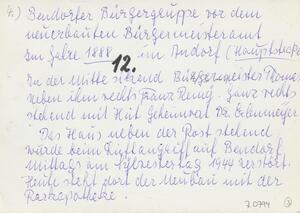 4.) Bendorfer Bürgergruppe vor dem
neuerbauten Bürgermeisteramt
im Jahre 1888 im Andorf (Hauptstraße
12.
In der Mitte sitzend Bürgermeister
neben ihm rechts Franz Remy. Ganz rechts
stehend mit Hut Geheimrat Dr. Erlenmeyer
Das Haus neben der Post stehend
wurde beim Luftangriff auf Bendorf
Mittags am Sylvestertag 1944 zerstört.
Heute steht dort der Neubau mit der
Parkapotheke.
7.0794